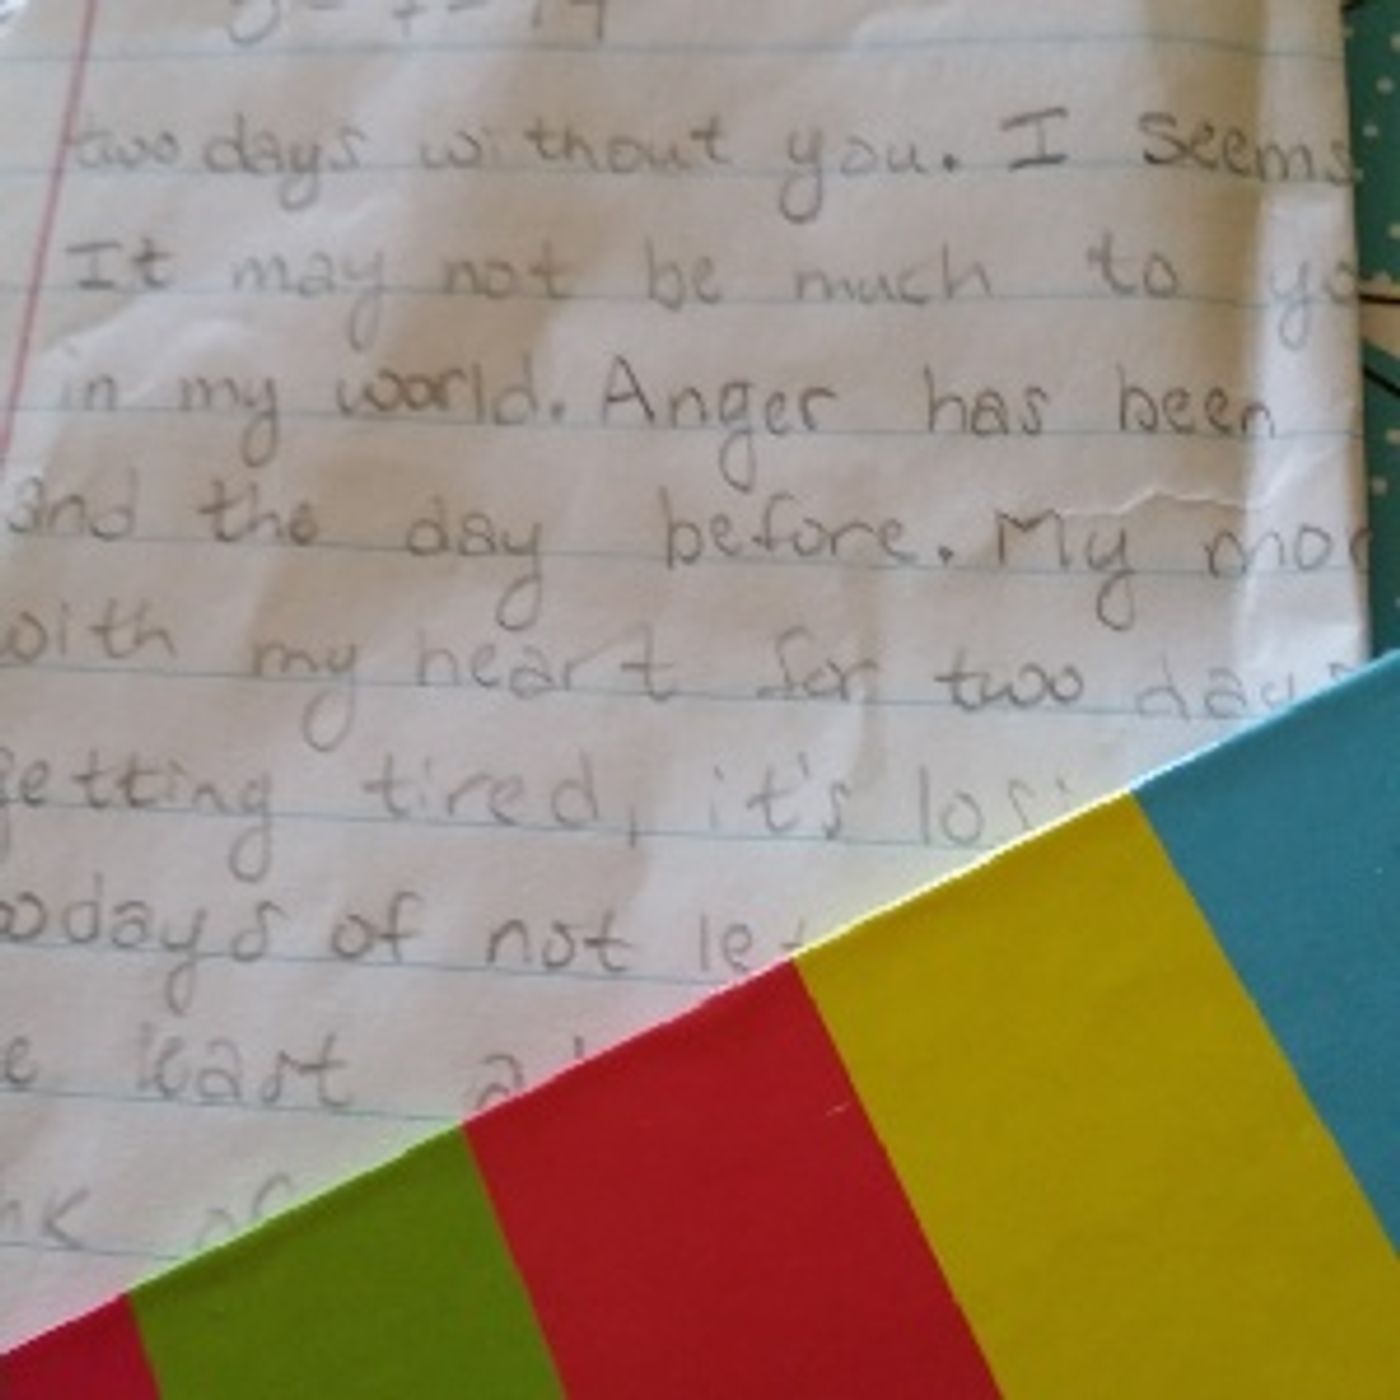 two days without you. I seems
It may not be much to
in my world. Anger has been
and the day before. My
with my heart for two days
getting tired, it's
days of not
least